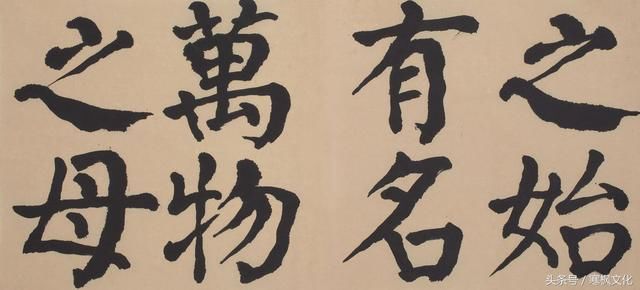 之始
有名
萬物
之母
头条号/寒枫文化